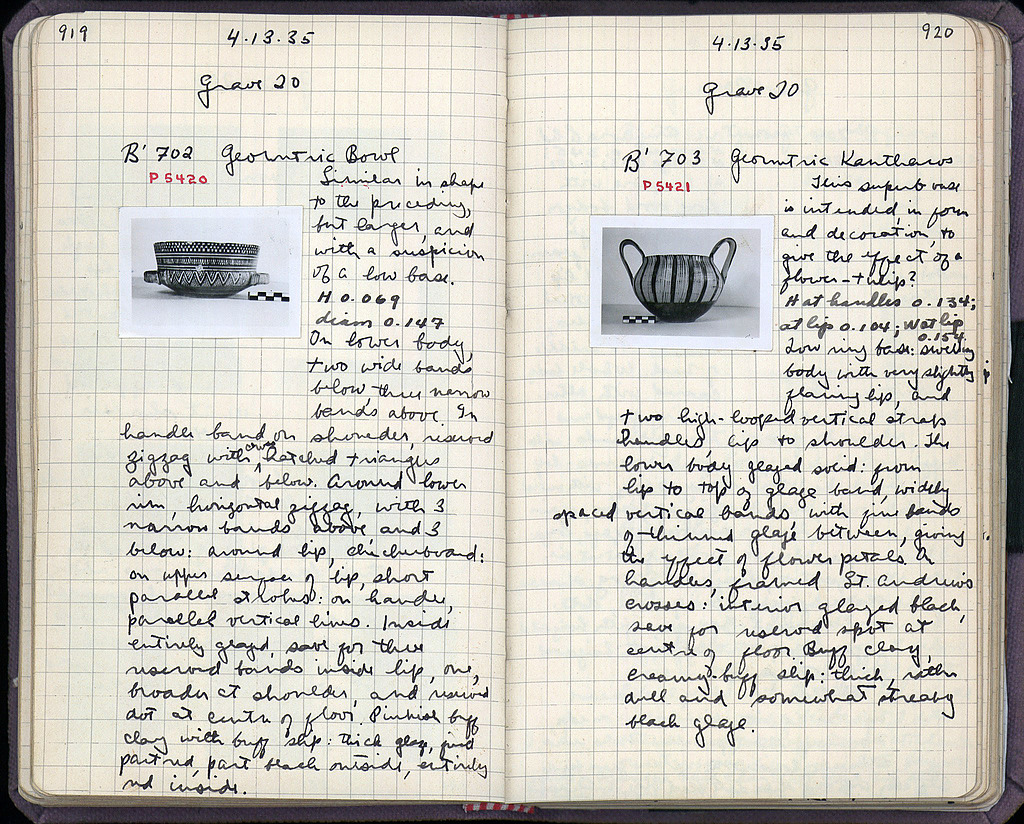 919
4·13·35
Grave 20
B' 702 Geometric Bowl
P 5420
Similar in shape
to the preceding,
but larger, and
with a suspicion
of a low base.
H 0.069
diam 0.147
On lower body,
two wide bands
below, three narrow
bands above. In
handle band on shoulder, reserved
zigzag with cross hatched triangles
above and below. Around lower
rim, horizontal zigzag, with 3
narrow bands above and 3
below: around lip, checkerboard:
on upper surface of lip, short
parallel strokes: on handles,
parallel vertical lines. Inside
entirely glazed, save for three
reserved bands inside lip, one,
broader at shoulder, and reserved
dot at centre of floor. Pinkish buff
clay with buff slip: thick glaze, fired
part red, part black outside, entirely
red inside.
920
4·13·35
Grave 20
B' 703 Geometric Kantharos
P 5421
This superb vase
is intended, in form
and decoration, to
give the effect of a
flower - tulip?
H at handles 0.134;
at lip 0.104; W at lip
0.154
Low ring base: swelling
body with very slightly
flaring lip, and
two high-looped vertical strap
handles lip to shoulder. The
lower body glazed solid: from
lip to top of glaze band, widely
spaced vertical bands, with fine bands
of thinned glaze between, giving
the effect of flower petals. On
handles, framed St. Andrew's
crosses: interior glazed black,
save for reserved spot at
centre of floor. Buff clay,
creamy-buff slip: thick, rather
dull and somewhat streaky
black glaze.